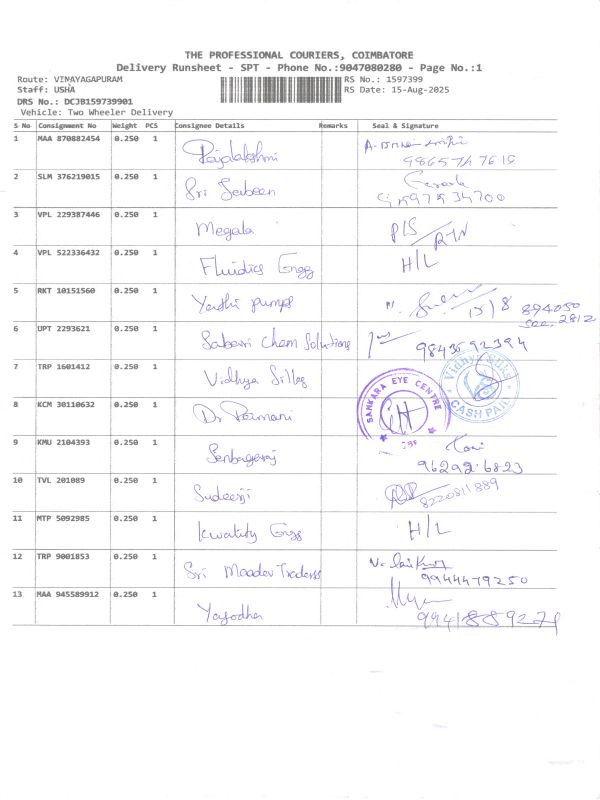 THE PROFESSIONAL COURIERS, COIMBATORE
Delivery Runsheet - SPT - Phone No.:9047080280 - Page No.:1
Route: VINAYAGAPURAM RS No.: 1597399
Staff: USHA RS Date: 15-Aug-2025
DRS No.: DCJB159739901
Vehicle: Two Wheeler Delivery
S No Consignment No Weight PCS Consignee Details Remarks Seal & Signature
1 MAA 870882454 0.250 1 Rajalakshmi
2 SLM 376219015 0.250 1 Sri
3 VPL 229387446 0.250 1 Megala
4 VPL 522336432 0.250 1 Fluidics Engg H/L
5 RKT 10151560 0.250 1 pumps 15/8
6 UPT 2293621 0.250 1 Sabari Chem Solutions
7 TRP 1601412 0.250 1 Vidhya Silks Vidhya Silks CASH PAID
8 KCM 30110632 0.250 1 Dr Ramani SANKARA EYE CENTRE
9 KMU 2104393 0.250 1
10 TVL 201089 0.250 1 8220811889
11 MTP 5092985 0.250 1 Engg H/L
12 TRP 9001853 0.250 1 Sri Traders 9944479250
13 MAA 945589912 0.250 1 Yasodha